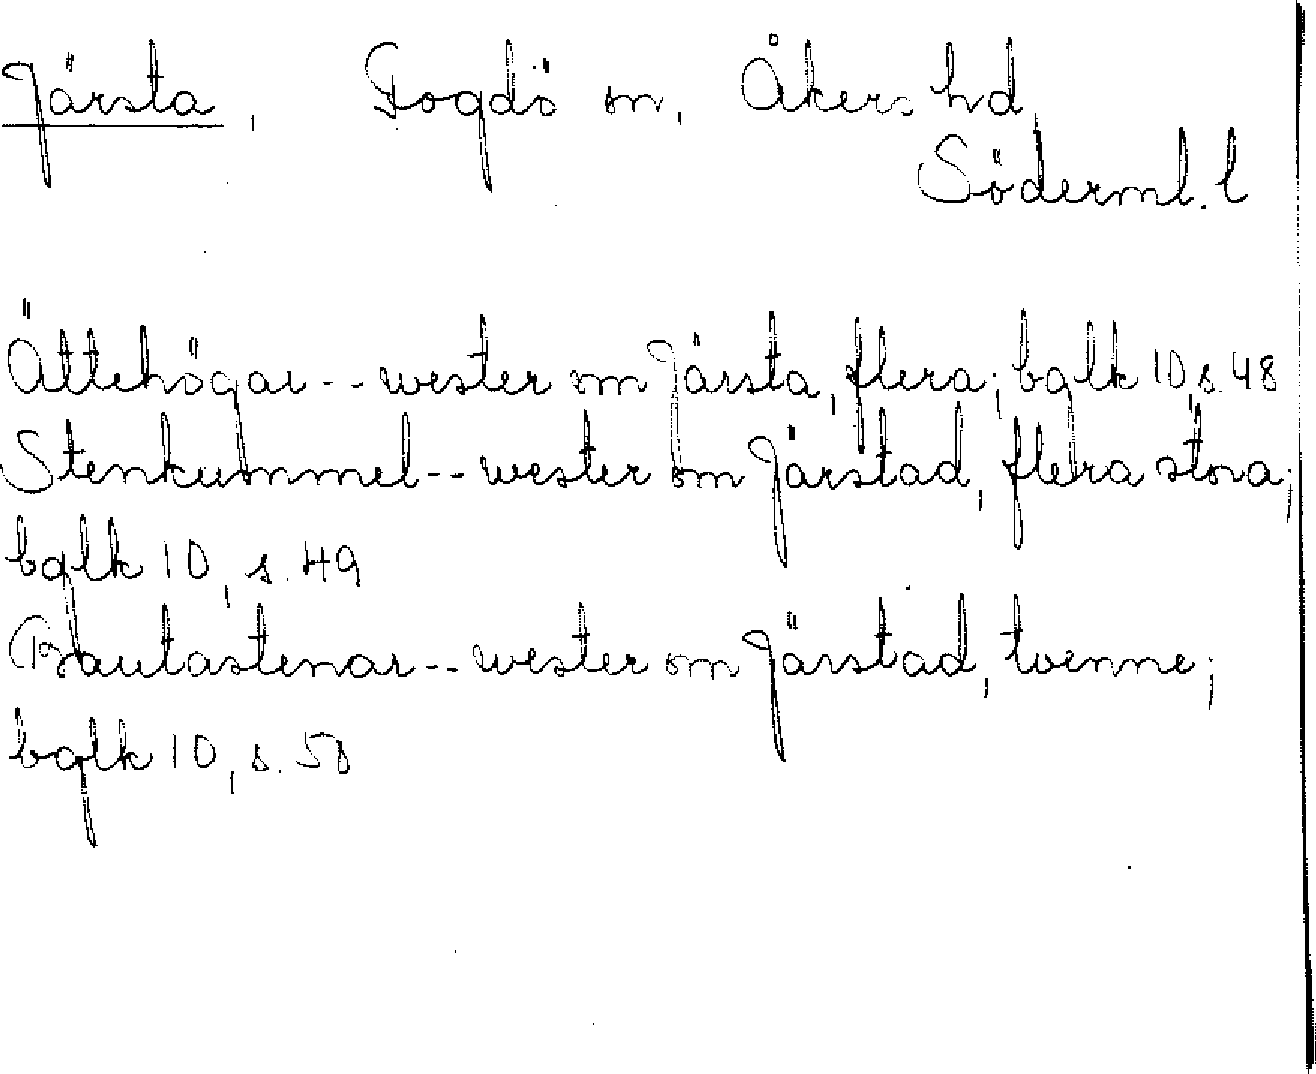 Järsta, Fogdö sn, Åkers hd,
Söderml. l
Ättehögar -- wester om Järsta, flera; bqlk 10, s. 48
Stenkummel -- wester om Järstad, flera stora;
bqlk 10, s. 49
Bautastenar -- wester om Järstad, tvenne;
bqlk 10, s. 50